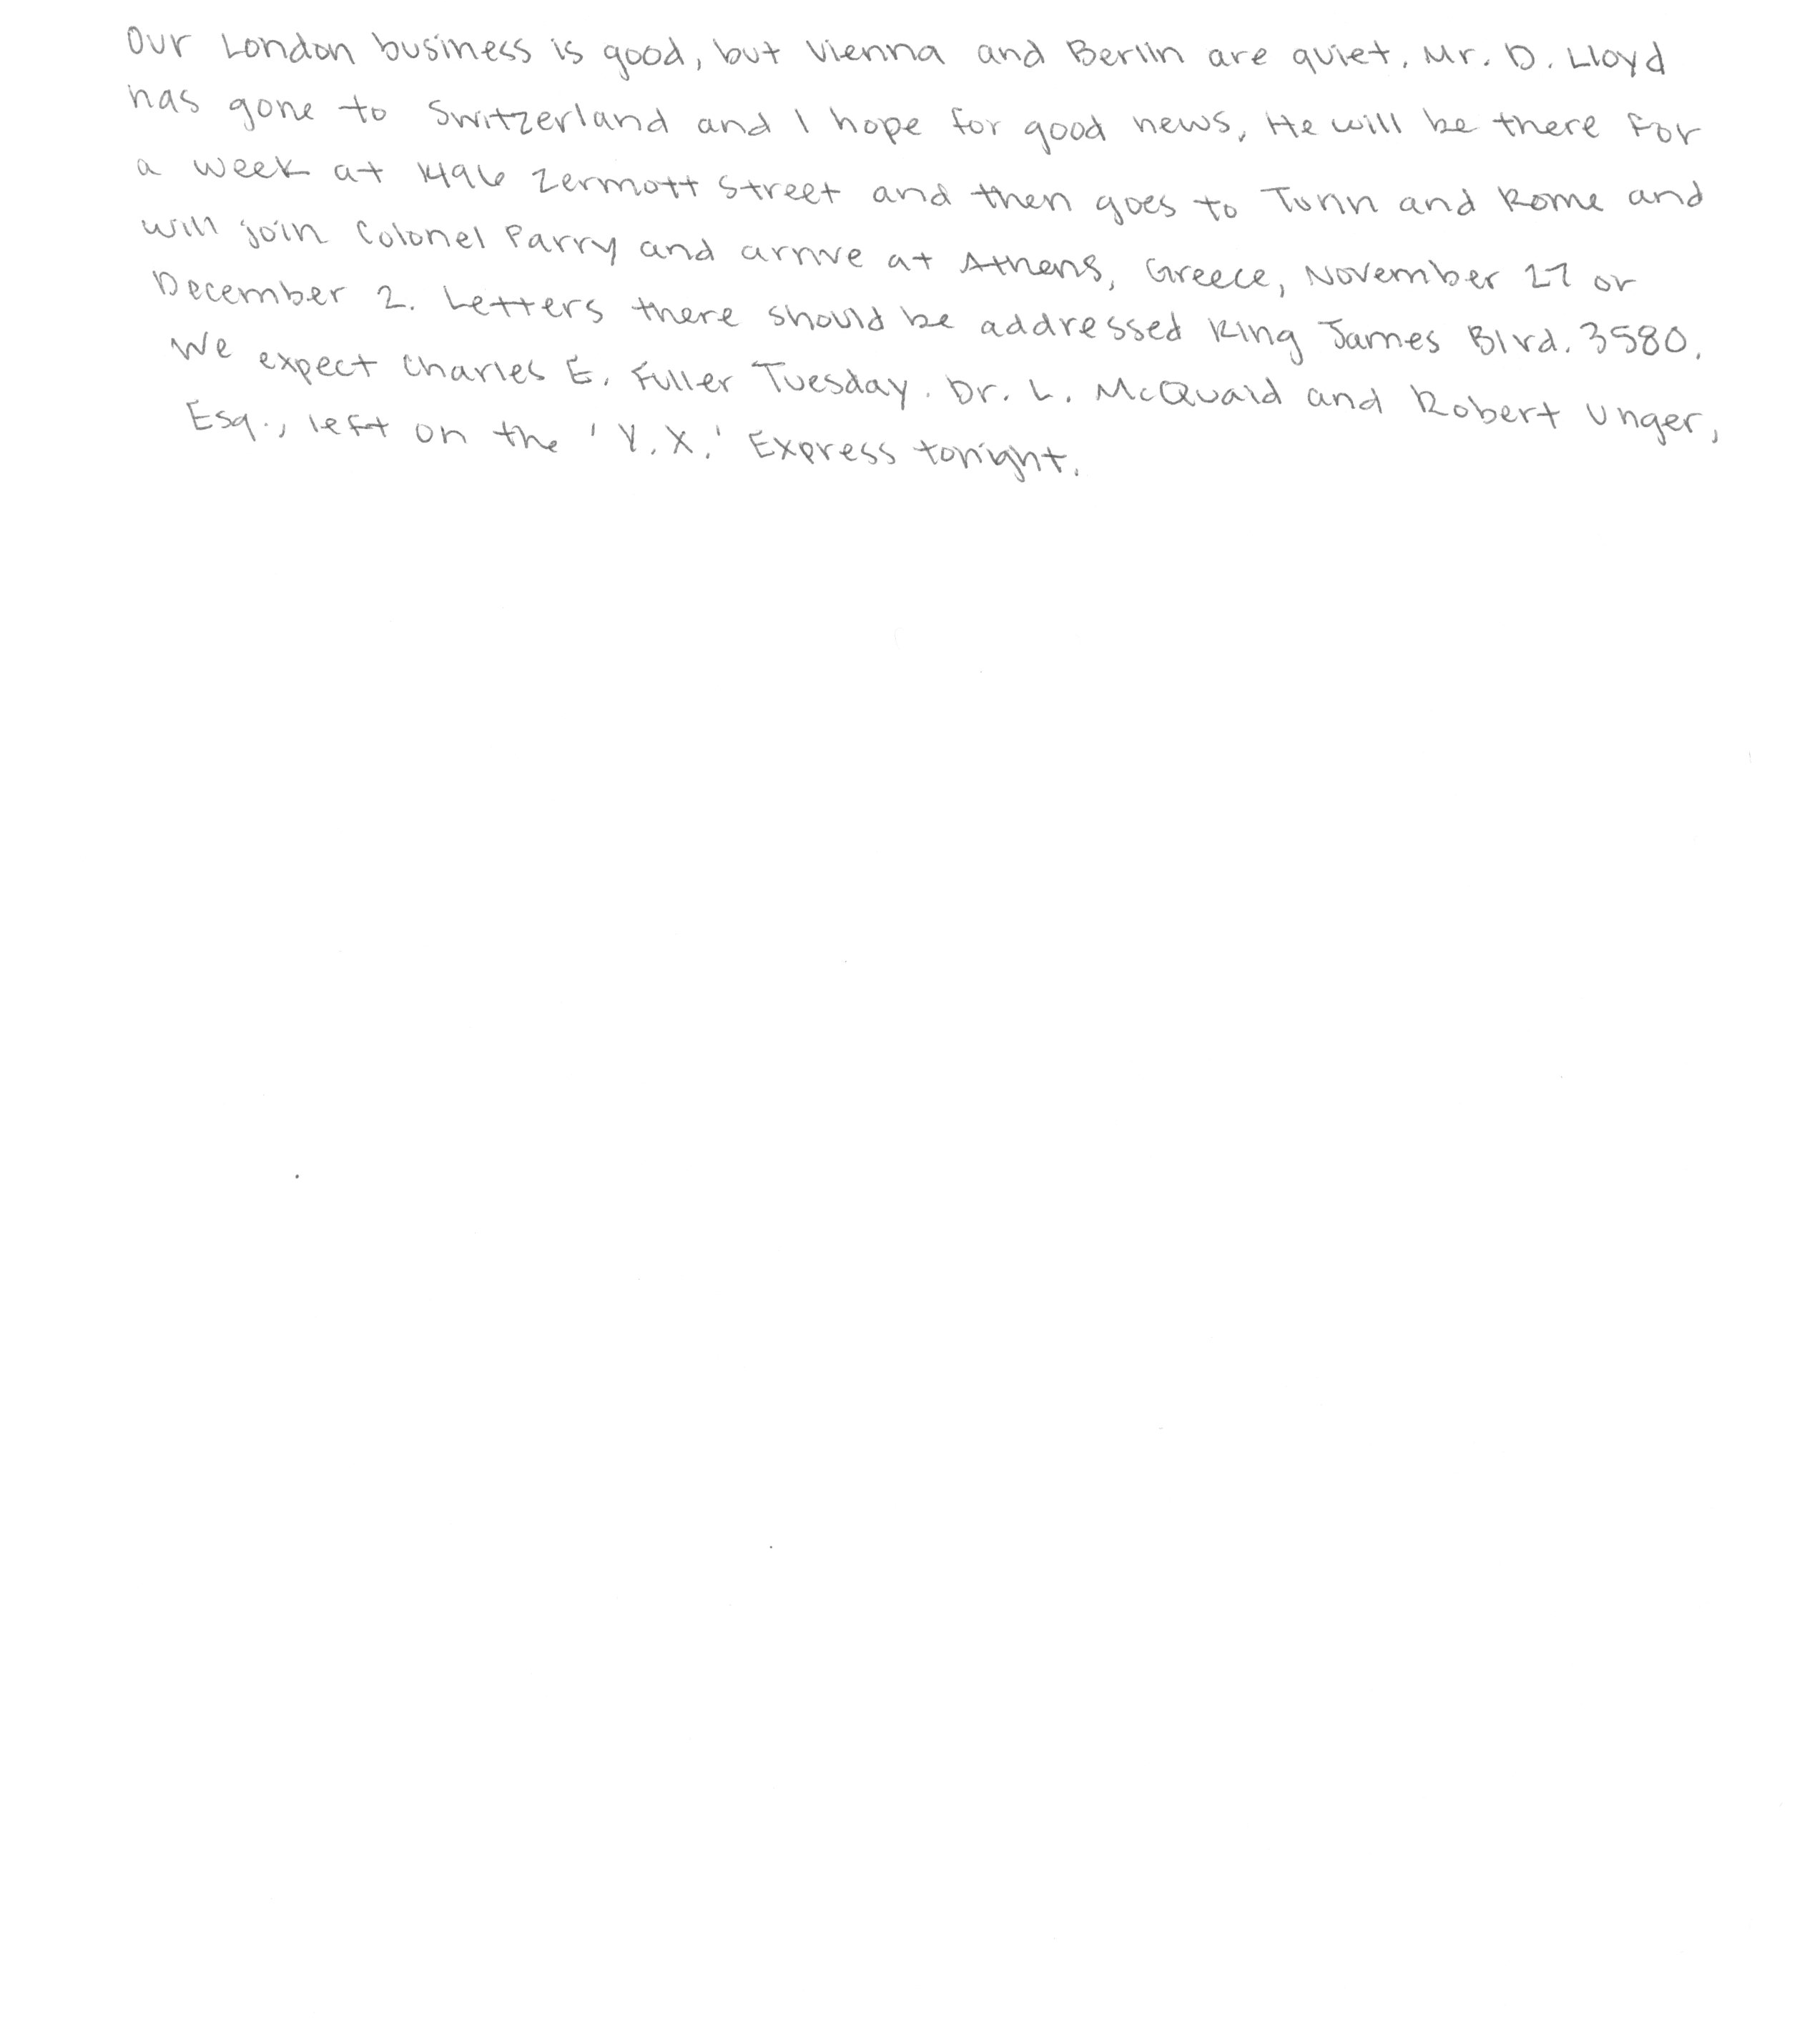 Our London business is good, but Vienna and Berlin are quiet. Mr. D. Lloyd
has gone to Switzerland and I hope for good news. He will be there for
a week at 1496 Zermott Street and then goes to Turin and Rome and
will join Colonel Parry and arrive at Athens, Greece, November 27 or
December 2. Letters there should be addressed King James Blvd. 3580.
We expect Charles E. Fuller Tuesday. Dr. L. McQuaid and Robert Unger,
Esq., left on the 'Y.X.' Express tonight.